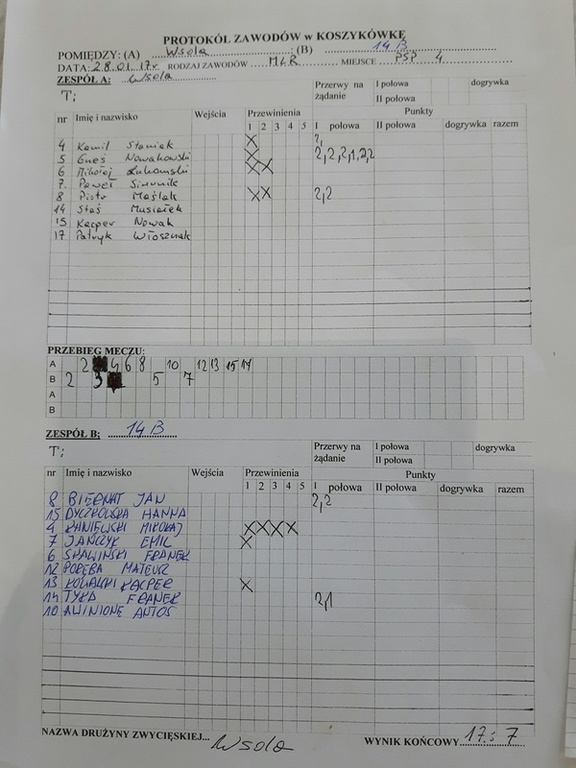 PROTOKÓŁ ZAWODÓW w KOSZYKÓWKĘ
POMIĘDZY: (A) Wsola : (B) 14 B
DATA: 28.01.17r. RODZAJ ZAWODÓW MLR MIEJSCE PSP 4
ZESPÓŁ A: Wsola
T:
Przerwy na żądanie I połowa dogrywka
II połowa
nr Imię i nazwisko Wejścia Przewinienia Punkty
1 2 3 4 5 I połowa II połowa dogrywka razem
4 Kamil Staniek X 2,
5 Nowakowski X 2,2,2,1,2,2
6 Mikołaj Łukomski X X
7. Paweł
8 Piotr Maślak X X 2,2
14 Staś Musiałek
15 Kacper Nowak
17 Patryk Włosznak
PRZEBIEG MECZU:
A 2 4 6 8 10 12 13 15 17
B 2 3 5 7
A
B
ZESPÓŁ B: 14 B
T:
Przerwy na żądanie I połowa dogrywka
II połowa
nr Imię i nazwisko Wejścia Przewinienia Punkty
1 2 3 4 5 I połowa II połowa dogrywka razem
8 BIERNAT JAN 2,2
15 DYCZKOWSKA HANNA
4 KANIEWSKI MIKOŁAJ X X X X
7 JAŃCZYK EMIL X
6 FRANEK
12 PORĘBA MATEUSZ
13 KACPER X
14 TYKA FRANEK 2,1
10 ANTOŚ
NAZWA DRUŻYNY ZWYCIĘSKIEJ... Wsola WYNIK KOŃCOWY 17:7